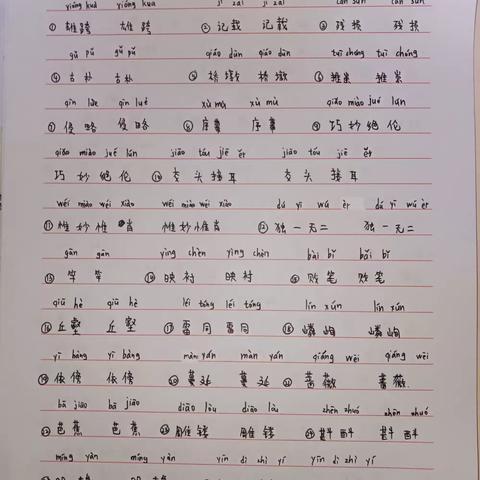 xióng kuà xióng kuà jì zǎi jì zǎi cán sǔn cán sǔn
① 雄跨 雄跨 ② 记载 记载 ③ 残损 残损
gǔ pǔ gǔ pǔ qiáo dūn qiáo dūn tuī chóng tuī chóng
④ 古朴 古朴 ⑤ 桥墩 桥墩 ⑥ 推崇 推崇
qīn lüè qīn lüè xù mù xù mù qiǎo miào jué lún
⑦ 侵略 侵略 ⑧ 序幕 序幕 ⑨ 巧妙绝伦
qiǎo miào jué lún jiāo tóu jiē ěr jiāo tóu jiē ěr
巧妙绝伦 ⑩ 交头接耳 交头接耳
wéi miào wéi xiào wéi miào wéi xiào dú yī wú èr dú yī wú èr
⑪ 惟妙惟肖 惟妙惟肖 ⑫ 独一无二 独一无二
gān gān yìng chèn yìng chèn bài bǐ bài bǐ
⑬ 竿 竿 ⑭ 映衬 映衬 ⑮ 败笔 败笔
qiū hè qiū hè léi tóng léi tóng lín xún lín xún
⑯ 丘壑 丘壑 ⑰ 雷同 雷同 ⑱ 嶙峋 嶙峋
yī bàng yī bàng màn yán màn yán qiáng wēi qiáng wēi
⑲ 依傍 依傍 ⑳ 蔓延 蔓延 ㉑ 蔷薇 蔷薇
bā jiāo bā jiāo diāo lòu diāo lòu zhēn zhuó zhēn zhuó
㉒ 芭蕉 芭蕉 ㉓ 雕镂 雕镂 ㉔ 斟酌 斟酌
míng yàn míng yàn yīn dì zhì yí yīn dì zhì yí